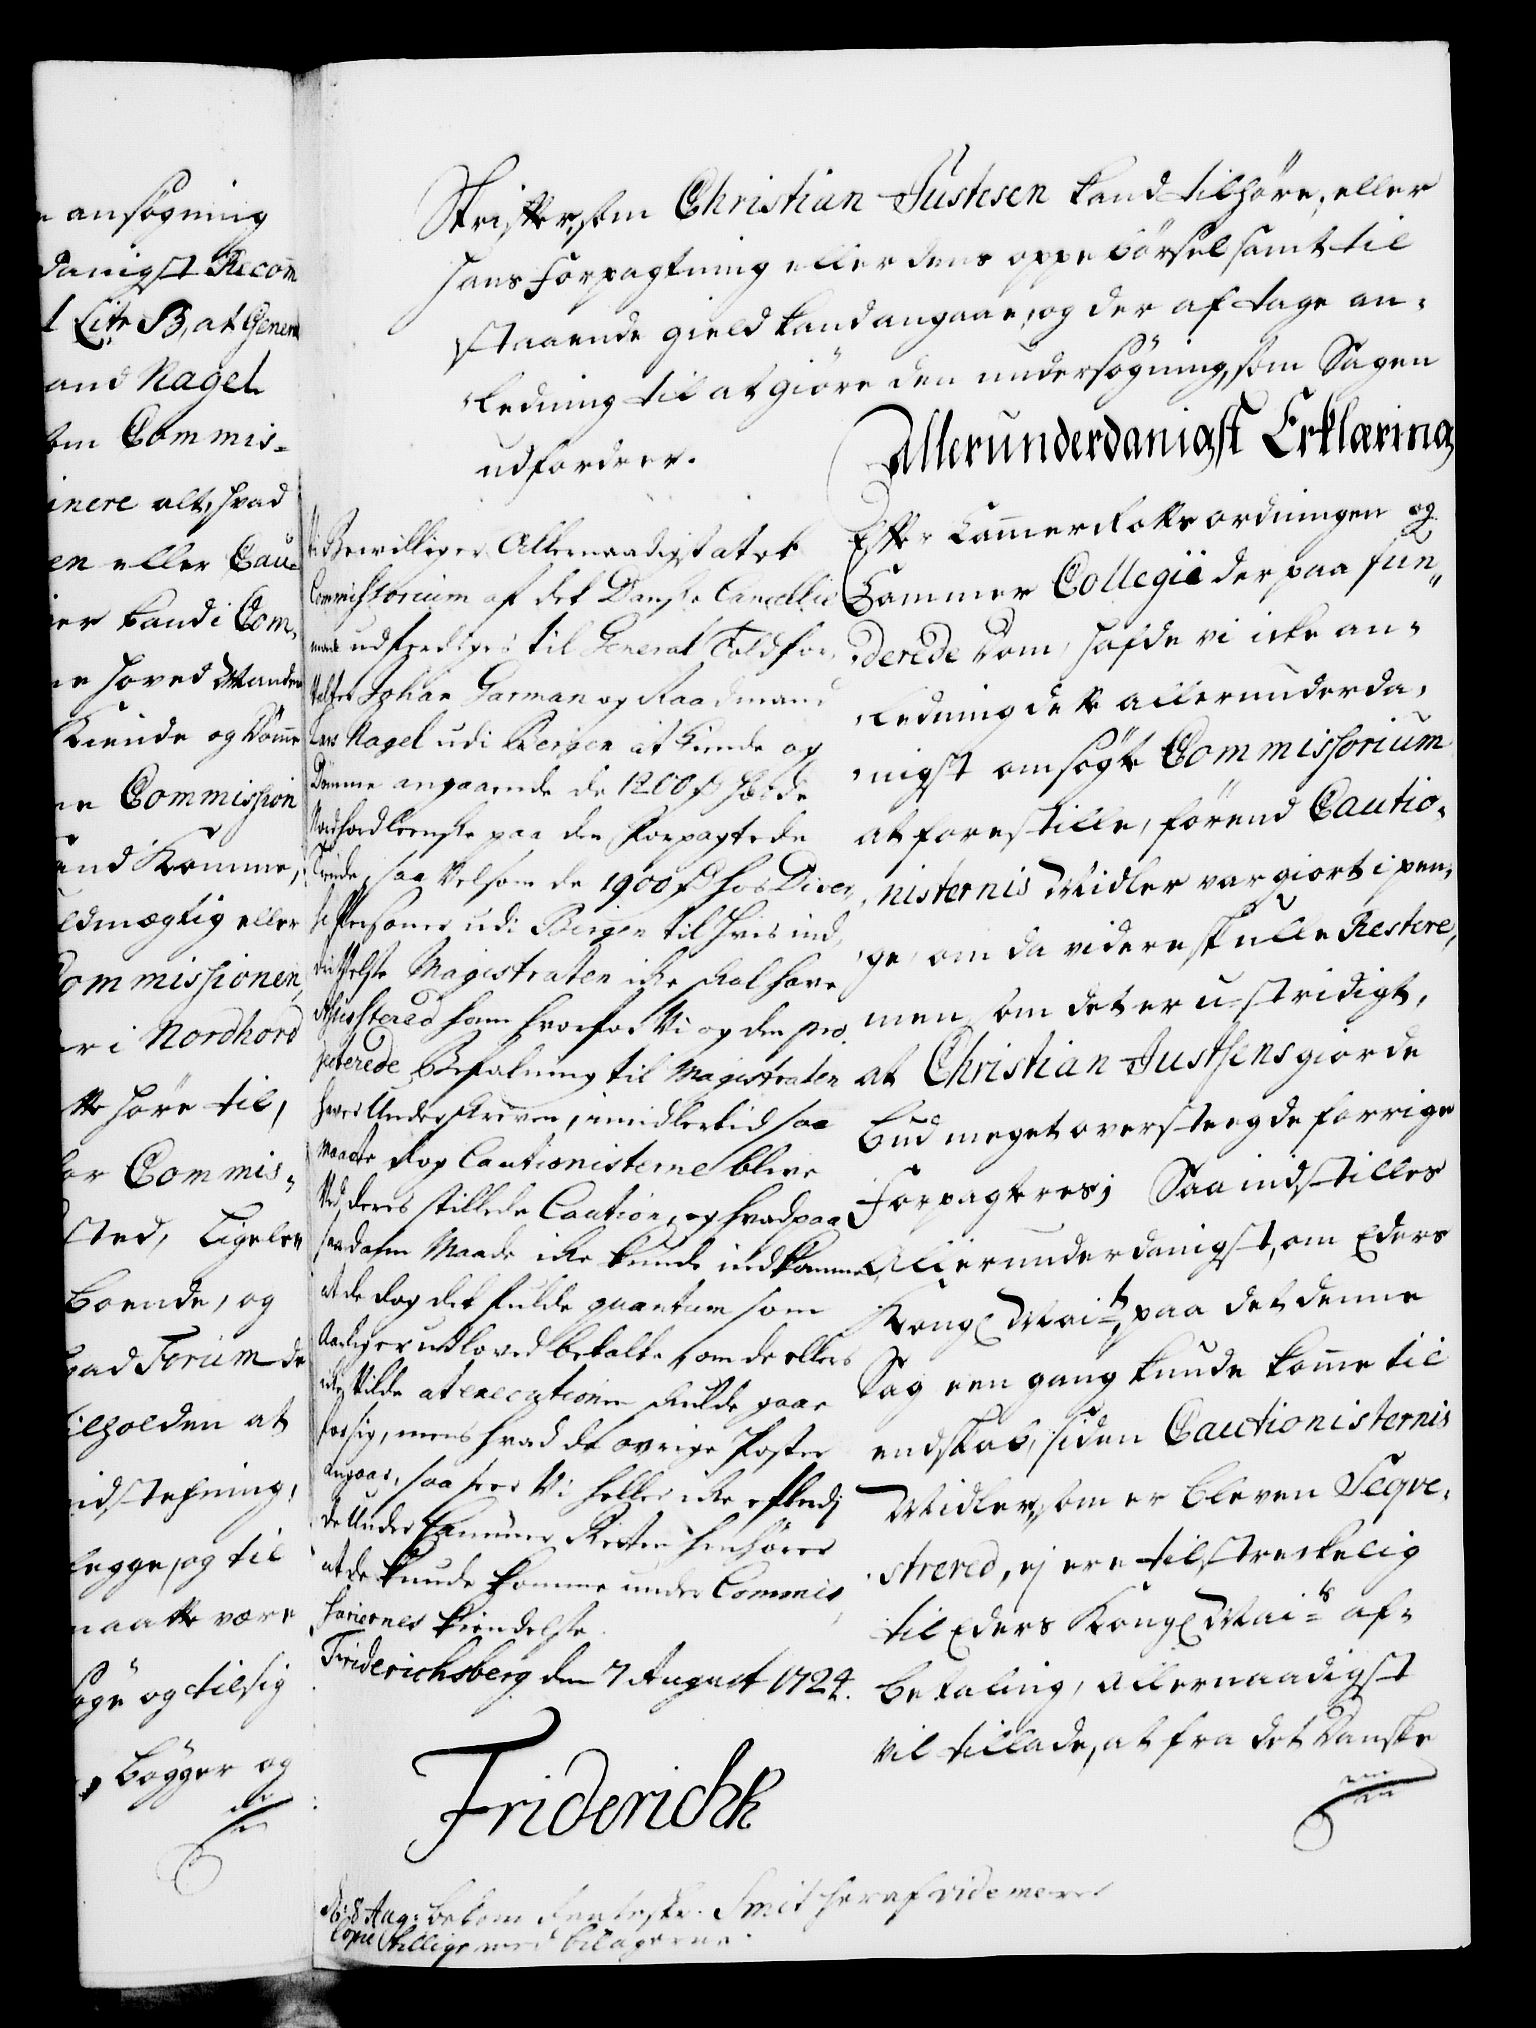 e ansøgning
danigst Recom
d Litr B, at Gener
and Nagel
om Commis-
inere alt, hvad
en eller Cau-
er kand i Com-
ne hoved Manden
Kiende og Dømme
ne Commission
and Komme,
ldmægtig eller
Commissionen,
er i Nordhord
tte høre til,
for Commis-
sted, Ligeleed
boende, og
had Forum de
tilholden at
ind stefning,
legge, og til
maatte være
søge og til sig
, bøgger og
Skrifter, som Christian Justesen kand tilhøre, eller
hans Forpagtning eller dens oppebørsel samt til
staaende gield kand angaae, og der af tage an-
ledning til at giøre den undersøgning, som Sagen
udfordrer.
Allerunderdanigst Erklæring
Efter Cammer Rettsordningen og
Cammer Collegii der paa fun-
derede Dom, hafde vi icke an-
ledning dette allerunderda-
nigst ansøgte Commissorium
at forestille, førend Cautio-
nisternis Midler var giort i pen-
ge, om da videre skulle Restere,
men som det er u-stridigt,
at Christian Justsens giorde
bud meget oversteeg de forrige
Forpagteres; Saa indstilles
Allerunderdanigst, om Eders
Kongl Mait, paa det denne
Sag een gang kunde komme til
endskab, siden Cautionisternis
Midler, som er bleven Seqve-
strered, ej ere tilstreckelig
til Eders Kongl Maits af-
betaling, allernaadigst
vil tillade, at fra det Danske
Vi Bevilliger Allernaadigst at et
Commissorium af det Danske Cancellie
maa udferdiges til General Toldfor-
valter Johan Garman og Raadmand
Lars Nagel udi Bergen at Kiende og
Dømme angaaende de 1200 hos de
Nordhordleenske paa den Forpagtede
Tiende, saa Velsom de 1900 hos Diver-
se Persohner udi Bergen til hvis ind-
drifvelse Magistraten icke skal have
Assistered ham hvorfor Vi og den pro-
jecterede Befalning til Magistraten
haver Underskreven, imidlertid saa
maatte dog Cautionisterne blive
Ved deres stillede Caution, og hvad paa
saadan Maade icke kunde indkomme
at de dog det fulde quantum som
Aarlig er udloved betalte, om de ellers
icke Vilde at executionen skulde gaae
for sig, mens hvad de øvrige Poster
angaar, saa seer Vi heller icke efterdj
de Under Cammer Retten henhører
at de kunde komme under Commis-
sariernes kiendelse.
Friderichsberg den 7 August 1724.
Friderich R
D. 8 Aug: bekom Renteskr. Smit heraf videmeret
Copie tillige med bilagerne.